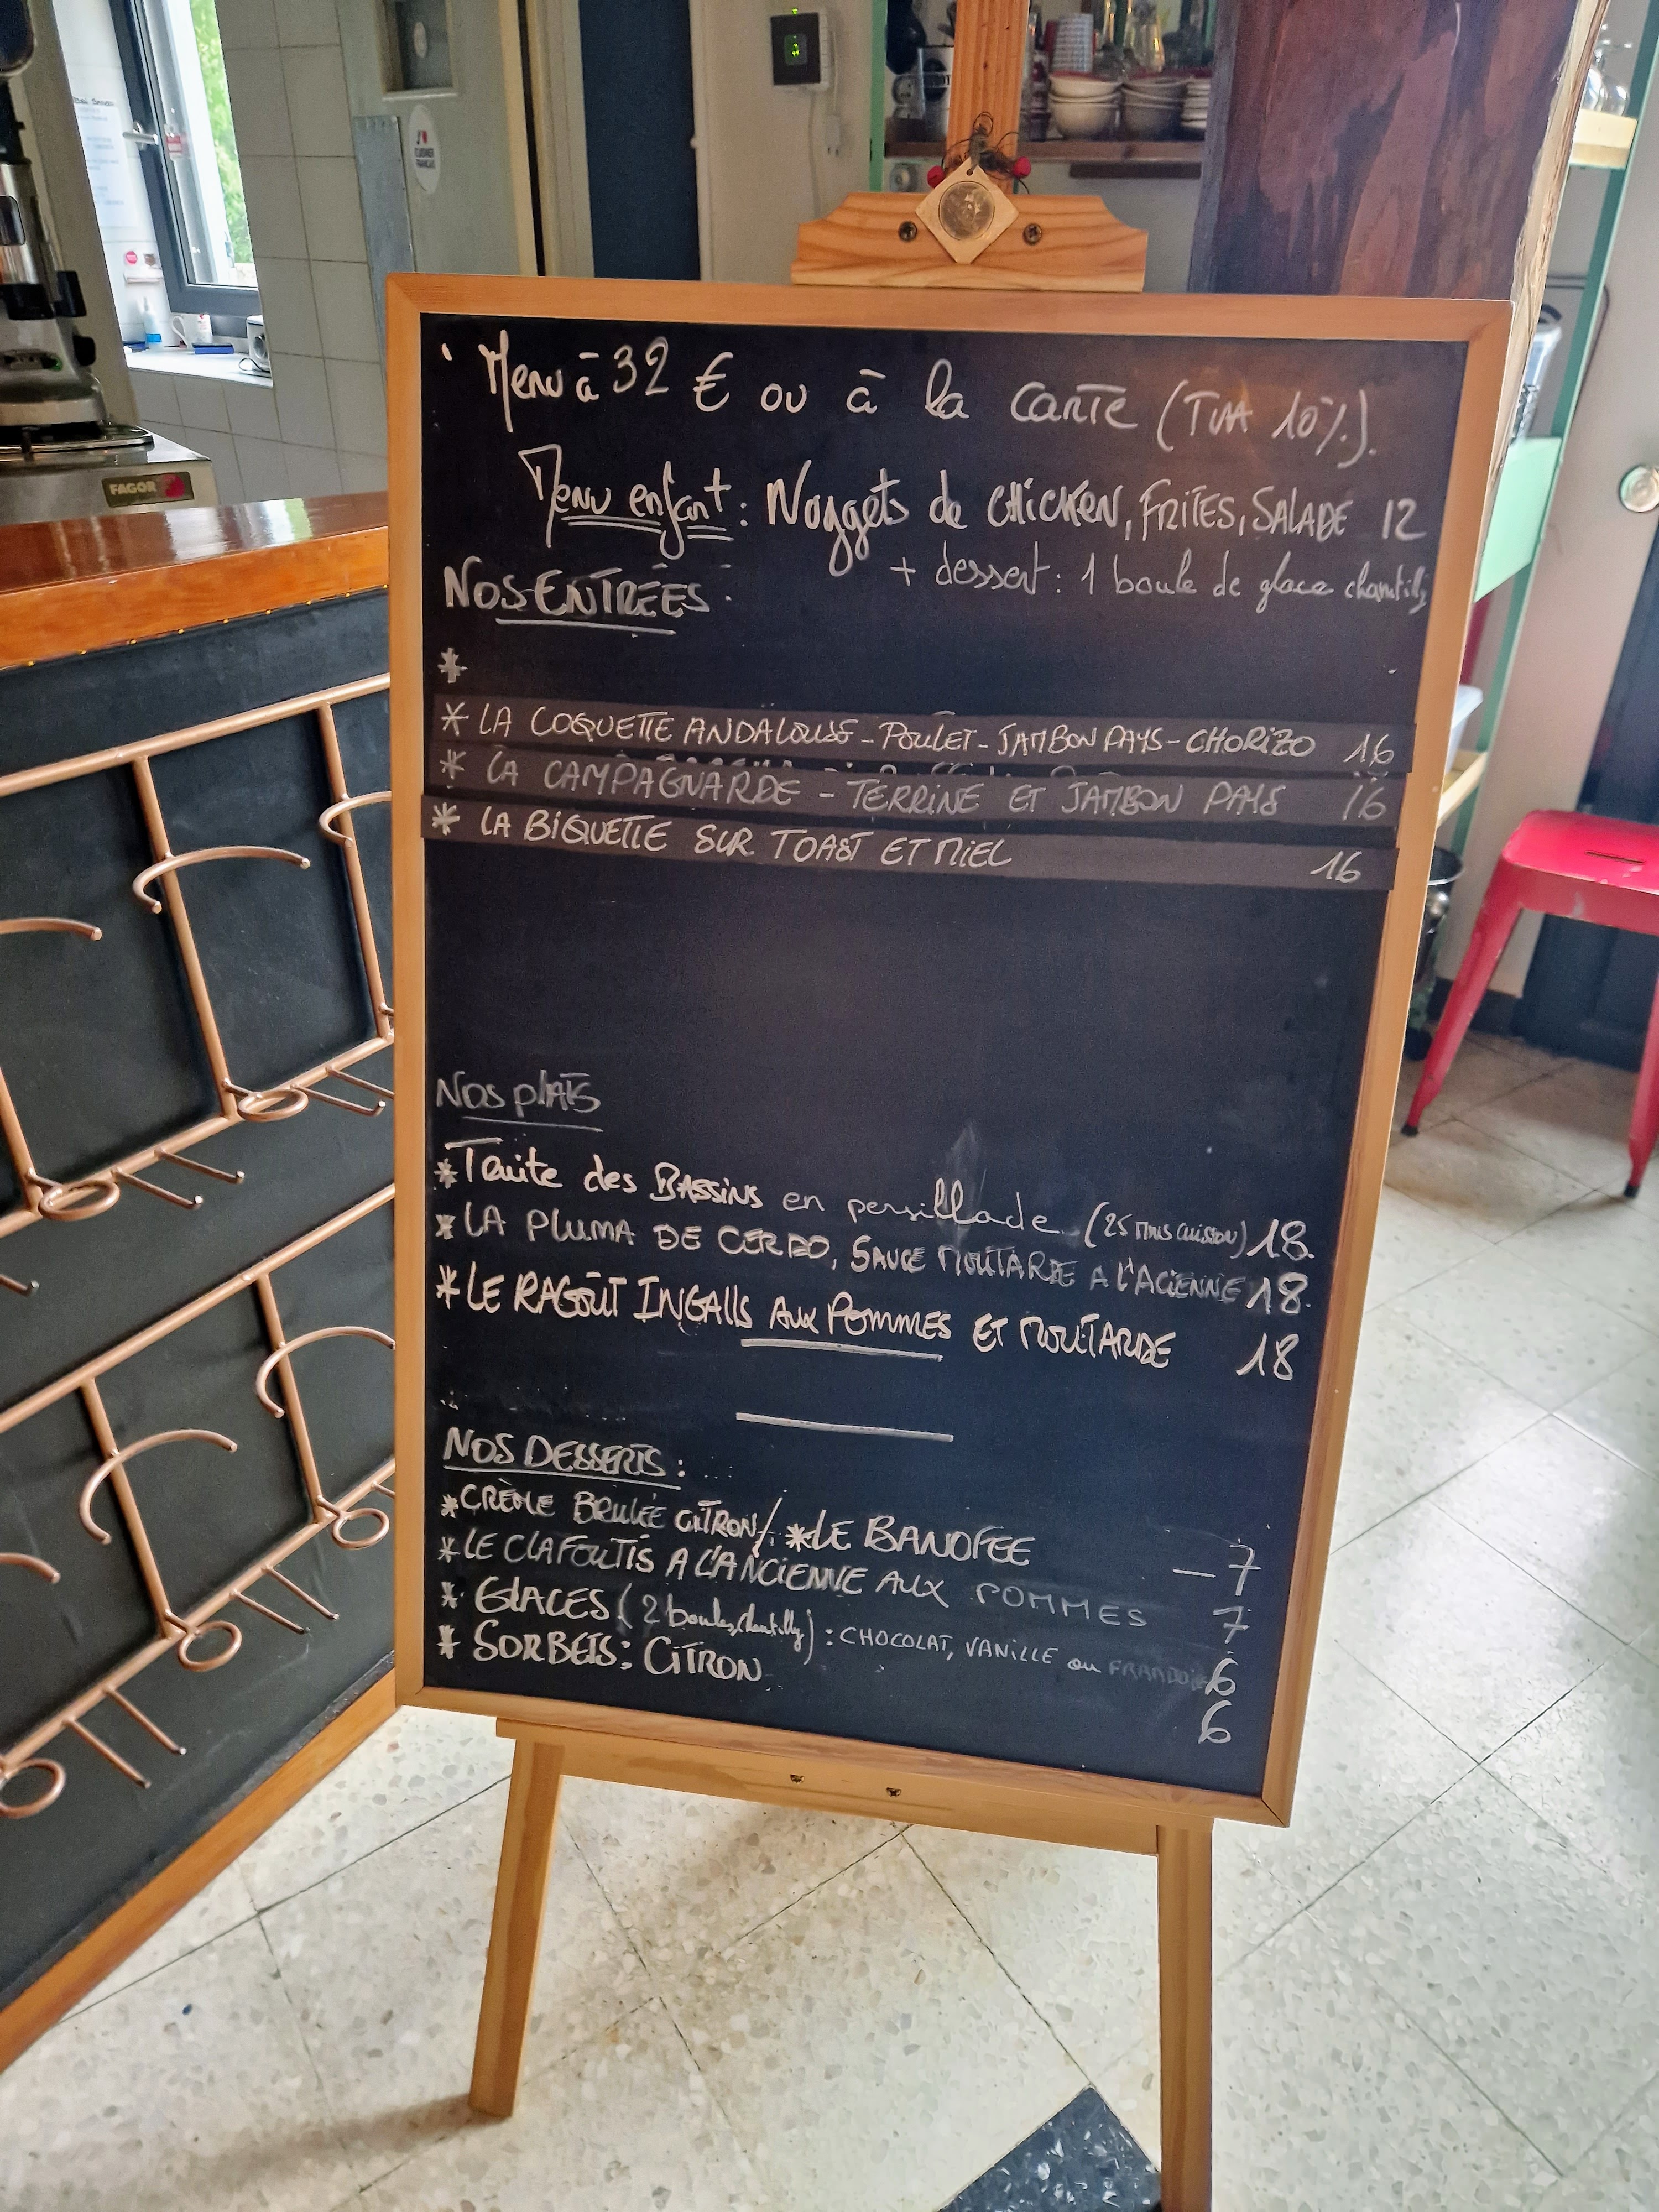 FAGOR
Menu à 32 € ou à la carte (TVA 10%).
Menu enfant : Nuggets de CHICKEN, FRITES, SALADE 12
+ dessert : 1 boule de glace chantilly
NOS ENTRÉES :
*
* LA COQUETTE ANDALOUSE - POULET - JAMBON PAYS - CHORIZO 16
* LA CAMPAGNARDE - TERRINE ET JAMBON PAYS 16
* LA BIQUETTE SUR TOAST ET MIEL 16
NOS plATS
* Truite des BASSINS en persillade (25 MINS CUISSON) 18.
* LA PLUMA DE CERDO, SAUCE MOUTARDE A l'ACIENNE 18.
* LE RAGOÛT INGAllS AUX POMMES ET MOUTARDE 18
NOS DESSERTS :
* CRÈME BRULÉE CITRON / * LE BANOFEE - 7
* LE CLAFOUTIS A L'ANCIENNE AUX POMMES 7
* GLACES ( 2 boules, chantilly) : CHOCOLAT, VANILLE ou 6
* SORBETS : CITRON 6